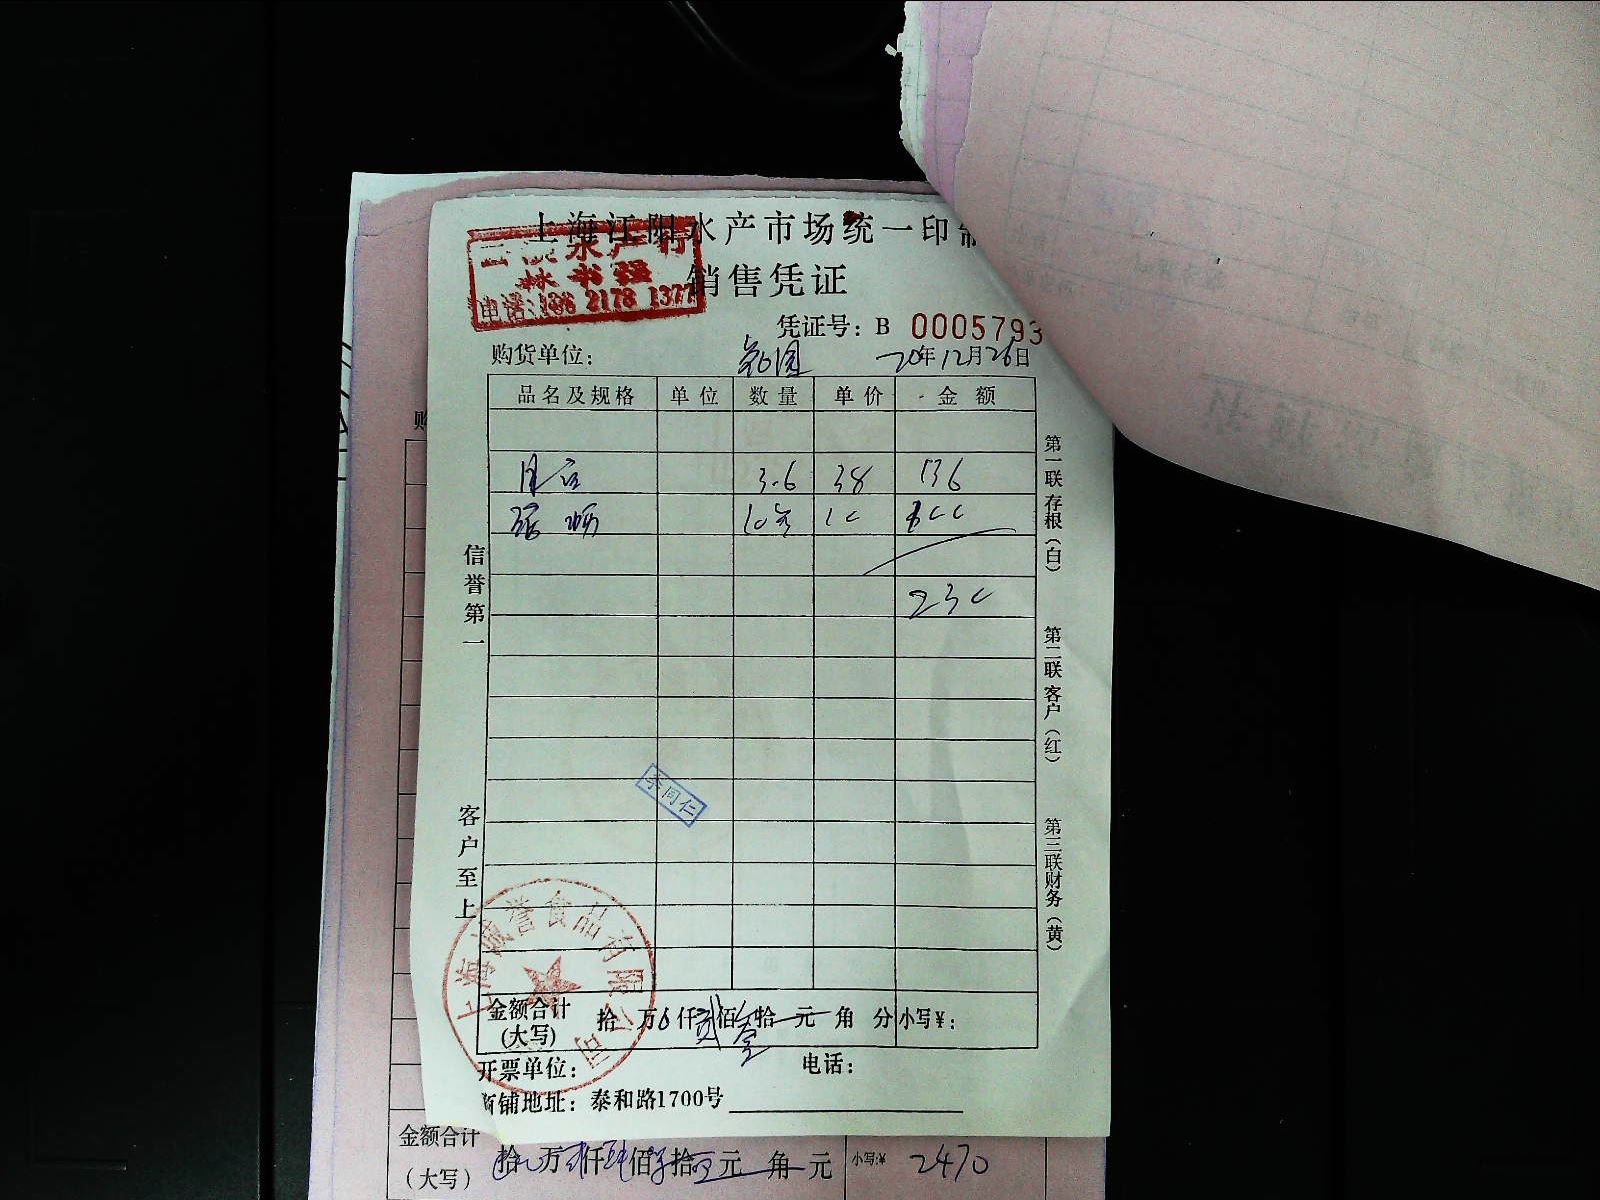 上海江阳水产市场统一印制
水产行
林书强
电话:186 2178 1377
销售凭证
凭证号: B 0005793
购货单位:
20年12月26日
品名及规格 单位 数量 单价 金额
3.6 38 136
10 100
230
信誉第一
客户至上
第一联存根(白)
第二联客户(红)
第三联财务(黄)
李同仁
上海诚誉食品有限公司
金额合计(大写) 拾 万 仟贰佰叁拾 元 角 分 小写¥:
开票单位: 电话:
商铺地址: 泰和路1700号
金额合计(大写) 拾 万 仟 佰 拾 元 角 元 小写:¥ 2470